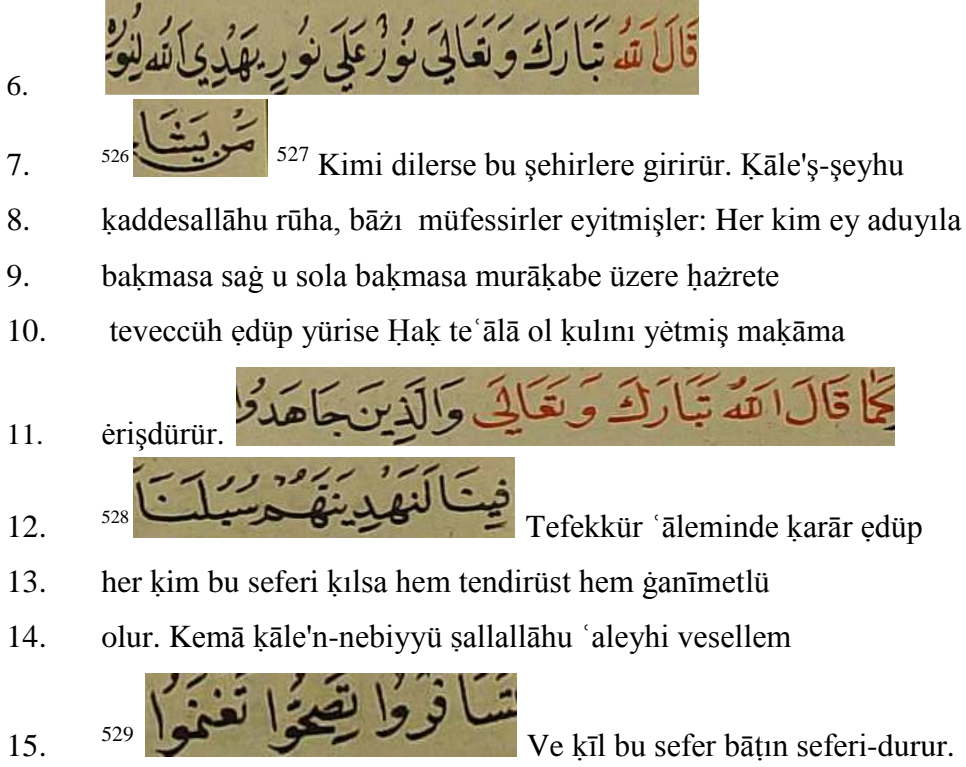 6. قَالَ اللهُ تَبَارَكَ وَتَعَالَى نُورٌ عَلَى نُورٍ يَهْدِي اللهُ لِنُورِهِ
7. 526 مَن يَشَا 527 Kimi dilerse bu şehirlere girirür. Ḳāle'ş-şeyhu
8. ḳaddesallāhu rūha, bāżı müfessirler eyitmişler: Her kim ey aduyıla
9. baḳmasa saġ u sola baḳmasa murāḳabe üzere ḥażrete
10. teveccüh ẹdüp yürise Ḥaḳ teʿālā ol ḳulını yėtmiş maḳāma
11. ėrişdürür. كَمَا قَالَ اللهُ تَبَارَكَ وَتَعَالَى وَالَّذِينَ جَاهَدُوا
12. 528 فِينَا لَنَهْدِيَنَّهُمْ سُبُلَنَا Tefekkür ʿāleminde ḳarār ẹdüp
13. her ḳim bu seferi ḳılsa hem tendirüst hem ġanīmetlü
14. olur. Kemā ḳāle'n-nebiyyü ṣallallāhu ʿaleyhi vesellem
15. 529 تَسَافَرُوا تَصِحُّوا تَغْنَمُوا Ve ḳīl bu sefer bāṭın seferi-durur.